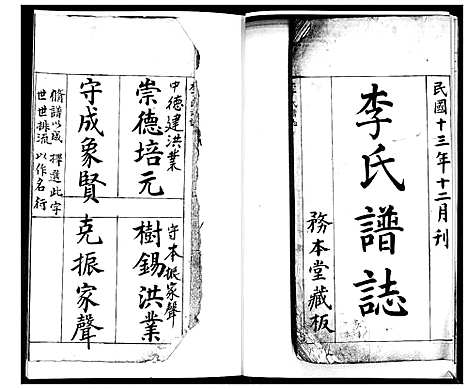 民國十三年十二月刊
李氏譜誌
務本堂藏板
中德建洪業
崇德培元
守本振家聲
樹錫洪業
守成象賢
克振家聲
脩譜以成擇選此字
世世排流以作名衍